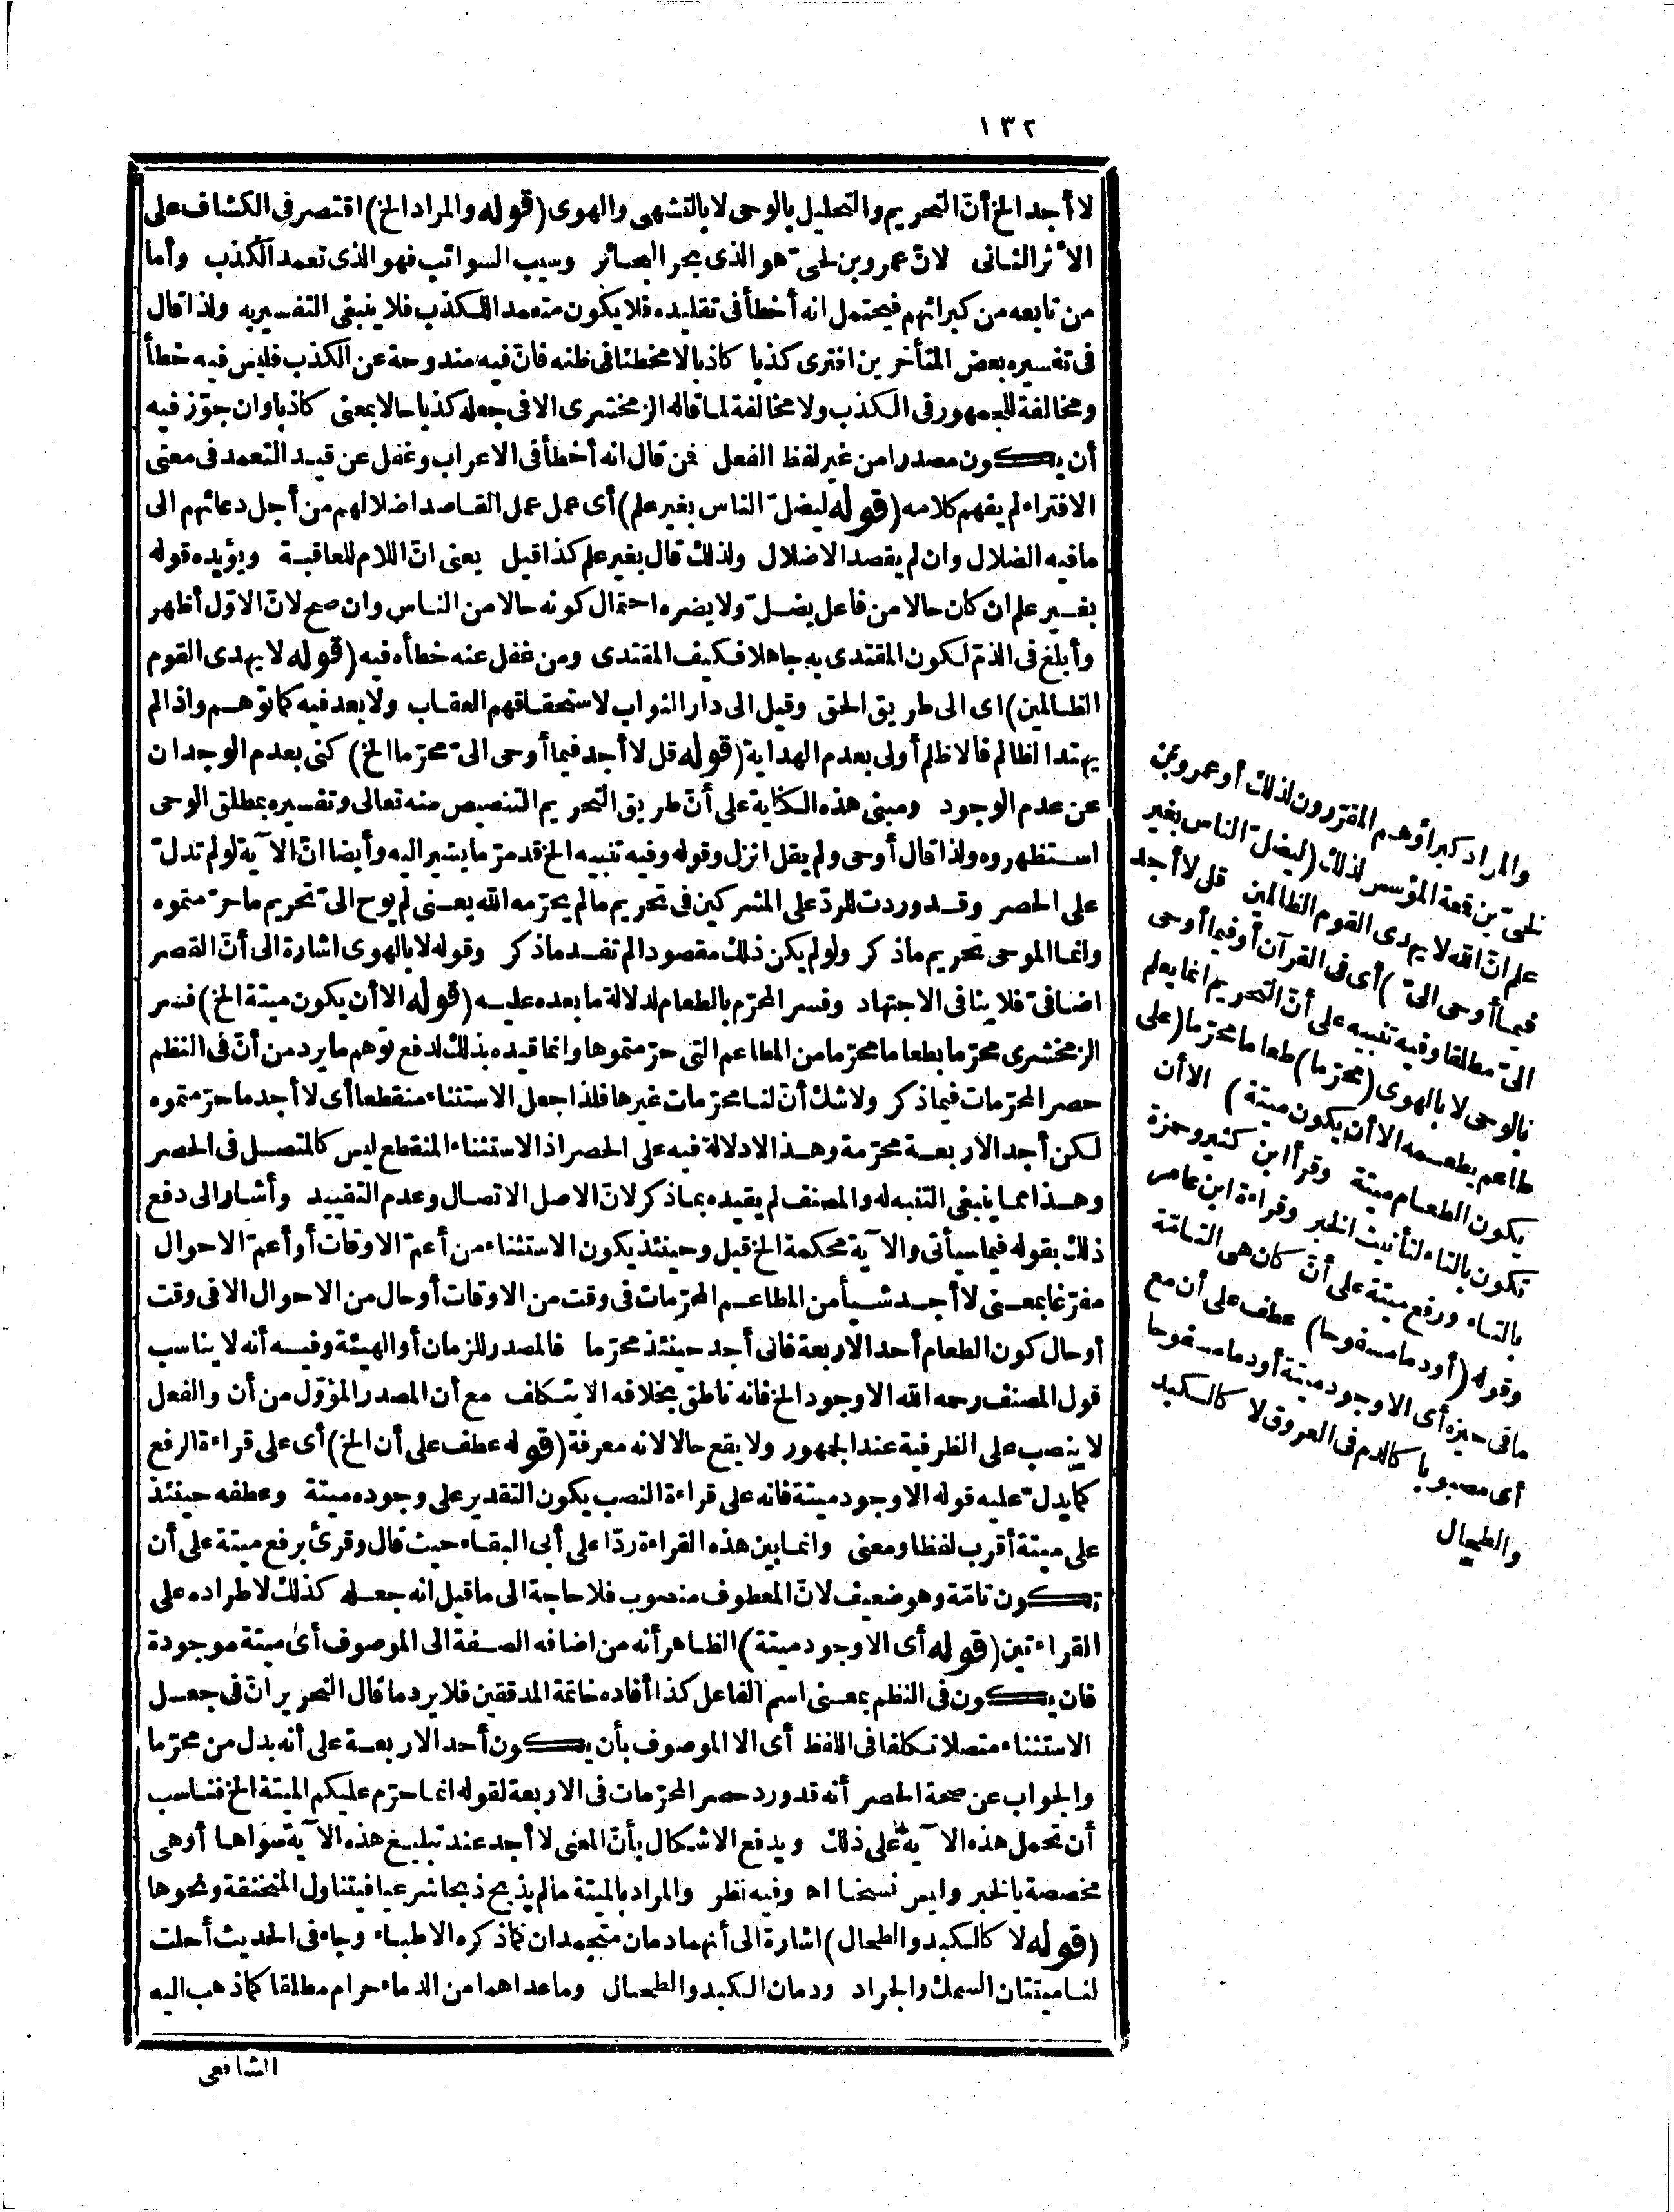 ١٣٢
لا أجد الخ أنّ التحريم والتحليل بالوحى لا بالتشهى والهوى (قوله والمراد الخ) اقتصر فى الكشاف على
الأثر الثانى لانّ عمرو بن لحىّ هو الذى بحر البحائر وسيب السوائب فهو الذى تعمد الكذب وأما
من تابعه من كبرائهم فيحتمل انه أخطأ فى تقليده فلا يكون متعمد اللكذب فلا ينبغى التفسير به ولذا قال
فى تفسيره بعض المتأخرين افترى كذبا كاذبا لا مخطئا فى ظنه فانّ فيه مندوحة عن الكذب فليس فيه خطأ
ومخالفة للجمهور فى الكذب ولا مخالفة لما قاله الزمخشرى الا فى جعله كذبا حالا بمعنى كاذبا وان جوّز فيه
أن يكون مصدرا من غير لفظ الفعل فمن قال انه أخطأ فى الاعراب وغفل عن قيد التعمد فى معنى
الافتراء لم يفهم كلامه (قوله ليضلّ الناس بغير علم) أى عمل عمل القاصد اضلالهم من أجل دعائهم الى
ما فيه الضلال وان لم يقصد الاضلال ولذلك قال بغير علم كذا قيل يعنى انّ اللام للعاقبة ويؤيده قوله
بغير علم ان كان حالا من فاعل يضلّ ولا يضره احتمال كونه حالا من الناس وان صح لانّ الاوّل أظهر
وأبلغ فى الذمّ لكون المقتدى به جاهلا فكيف المقتدى ومن غفل عنه خطأه فيه (قوله لا يهدى القوم
الظالمين) اى الى طريق الحق وقيل الى دار الثواب لاستحقاقهم العقاب ولا بعد فيه كما توهم واذا لم
يهتد الظالم فالاظلم أولى بعدم الهداية (قوله قل لا أجد فيما أوحى الىّ محرّما الخ) كنى بعدم الوجدان
عن عدم الوجود ومبنى هذه الكناية على أنّ طريق التحريم التنصيص منه تعالى وتفسيره بمطلق الوحى
استظهروه ولذا قال أوحى ولم يقل انزل وقوله وفيه تنبيه الخ قد مرّ ما يشير اليه وأيضا انّ الآية لو لم تدلّ
على الحصر وقد وردت للردّ على المشركين فى تحريم ما لم يحرّمه الله يعنى لم يوح الىّ تحريم ما حرّمتموه
وانما الموحى تحريم ما ذكر ولو لم يكن ذلك مقصودا لم تفد ما ذكر وقوله لا بالهوى اشارة الى أنّ القصر
اضافىّ فلا ينافى الاجتهاد وفسر المحرّم بالطعام لدلالة ما بعده عليه (قوله الا أن يكون ميتة الخ) فسر
الزمخشرى محرّما بطعاما محرّما من المطاعم التى حرّمتموها وانما قيده بذلك لدفع توهم ما يرد من أنّ فى النظم
حصر المحرّمات فيما ذكر ولا شك أنّ لنا محرّمات غيرها فلذا جعل الاستثناء منقطعا أى لا أجد ما حرّمتموه
لكن أجد الاربعة محرّمة وهذا لا دلالة فيه على الحصر اذ الاستثناء المنقطع ليس كالمتصل فى الحصر
وهذا مما ينبغى التنبه له والمصنف لم يقيده بما ذكر لانّ الاصل الاتصال وعدم التقييد وأشار الى دفع
ذلك بقوله فيما سيأتى والآية محكمة الخ قيل وحينئذ يكون الاستثناء من أعمّ الاوقات أو أعمّ الاحوال
مفرّغا بمعنى لا أجد شيأ من المطاعم المحرّمات فى وقت من الاوقات أو حال من الاحوال الا فى وقت
أو حال كون الطعام أحد الاربعة فانى أجد حينئذ محرّما فالمصدر للزمان أو الهيئة وفيه أنه لا يناسب
قول المصنف رحمه الله الا وجود الخ فانه ناطق بخلافه الا بتكلف مع أن المصدر المؤوّل من أن والفعل
لا ينصب على الظرفية عند الجمهور ولا يقع حالا لانه معرفة (قوله عطف على أن الخ) أى على قراءة الرفع
كما يدلّ عليه قوله الا وجود ميتة فانه على قراءة النصب يكون التقدير على وجوده ميتة وعطفه حينئذ
على ميتة أقرب لفظا ومعنى وانما بين هذه القراءة ردّا على أبى البقاء حيث قال وقرئ برفع ميتة على أن
تكون تامّة وهو ضعيف لانّ المعطوف منصوب فلا حاجة الى ما قيل انه جعله كذلك لاطراده على
القراءتين (قوله أى الا وجود ميتة) الظاهر أنه من اضافه الصفة الى الموصوف أى ميتة موجودة
فان يكون فى النظم بمعنى اسم الفاعل كذا أفاده خاتمة المدققين فلا يرد ما قال النحرير انّ فى جعل
الاستثناء متصلا تكلفا فى اللفظ أى الا الموصوف بأن يكون أحد الاربعة على أنه بدل من محرّما
والجواب عن صحة الحصر أنه قد ورد حصر المحرّمات فى الاربعة لقوله انما حرّم عليكم الميتة الخ فناسب
أن تحمل هذه الآية على ذلك ويدفع الاشكال بأنّ المعنى لا أجد عند تبليغ هذه الآية سواها أو هى
مخصصة بالخبر وليس نسخا اه وفيه نظر والمراد بالميتة ما لم يذبح ذبحا شرعيا فيتناول المنخنقة ونحوها
(قوله لا كالكبد والطحال) اشارة الى أنهما دمان متجمدان كما ذكره الاطباء وجاء فى الحديث أحلت
لنا ميتتان السمك والجراد ودمان الكبد والطحال وما عداهما من الدماء حرام مطلقا كما ذهب اليه
الشافعى
والمراد كبراؤهم المقرّرون لذلك أو عمرو بن
لحىّ بن قمعة المؤسس لذلك (ليضلّ الناس بغير
علم انّ الله لا يهدى القوم الظالمين قل لا أجد
فيما أوحى الىّ) أى فى القرآن أو فيما أوحى
الىّ مطلقا وفيه تنبيه على أنّ التحريم انما يعلم
بالوحى لا بالهوى (محرّما) طعاما محرّما (على
طاعم يطعمه الا أن يكون ميتة) الا أن
يكون الطعام ميتة وقرأ ابن كثير وحمزة
تكون بالتاء لتأنيث الخبر وقراءة ابن عامر
بالتاء ورفع ميتة على أنّ كان هى التامّة
وقوله (أو دما مسفوحا) عطف على أن مع
ما فى حيزه أى الا وجود ميتة أو دما مسفوحا
أى مصبوبا كالدم فى العروق لا كالكبد
والطحال